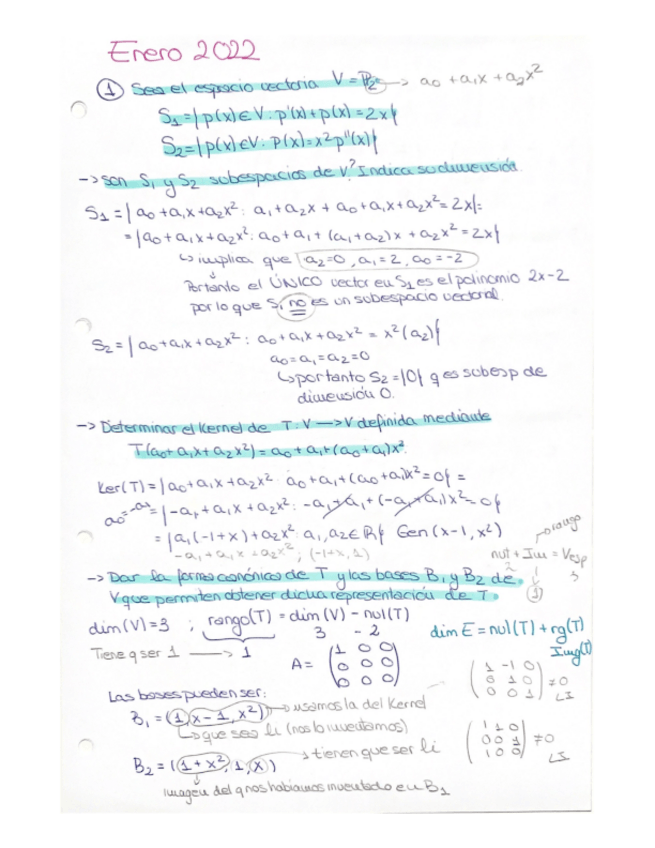 Enero 2022
① Sea el espacio vectoria V = P₂ → a₀ + a₁x + a₂x²
S₁ = {p(x) ∈ V : p'(x) + p(x) = 2x}
S₂ = {p(x) ∈ V : p(x) = x²p''(x)}
-> son S₁ y S₂ subespacios de V? Indica su dimensión.
S₁ = {a₀ + a₁x + a₂x² : a₁ + a₂x + a₀ + a₁x + a₂x² = 2x} =
= {a₀ + a₁x + a₂x² : a₀ + a₁ + (a₁ + a₂)x + a₂x² = 2x}
↳ implica que a₂=0, a₁=2, a₀=-2
Portanto el ÚNICO vector en S₁ es el polinomio 2x-2
por lo que S₁ no es un subespacio vectorial.
S₂ = {a₀ + a₁x + a₂x² : a₀ + a₁x + a₂x² = x²(a₂)}
a₀ = a₁ = a₂ = 0
↳ portanto S₂ = {0} q es subesp de
dimensión 0.
-> Determinar el Kernel de T: V → V definida mediante
T(a₀ + a₁x + a₂x²) = a₀ + a₁ + (a₀ + a₁)x².
Ker(T) = {a₀ + a₁x + a₂x² : a₀ + a₁ + (a₀ + a₁)x² = 0} =
a₀ = -a₁ = {-a₁ + a₁x + a₂x² : -a₁ + a₁ + (-a₁ + a₁)x² = 0}
= {a₁(-1+x) + a₂x² : a₁, a₂ ∈ ℝ} Gen(x-1, x²)
-a₁ + a₁x + a₂x² ; (-1+x, 1)
rango
nul + Im = Vesp
2 1 3
-> Dar la forma canónica de T y las bases B₁ y B₂ de
V que permiten obtener dicha representación de T.
dim(V) = 3 ; rango(T) = dim(V) - nul(T)
3 - 2
dim E = nul(T) + rg(T)
Img(T)
Tiene q ser 1 → 1
A = (1 0 0
0 0 0
0 0 0)
(1 -1 0
0 1 0
0 0 1) ≠0
LI
Las bases pueden ser:
B₁ = (1, x-1, x²) → usamos la del Kernel
↳ que sea li (nos lo inventamos)
B₂ = (1+x², 1, x) → tienen que ser li
(1 1 0
0 0 1
1 0 0) ≠0
LI
imagen del q nos habiamos inventado en B₁